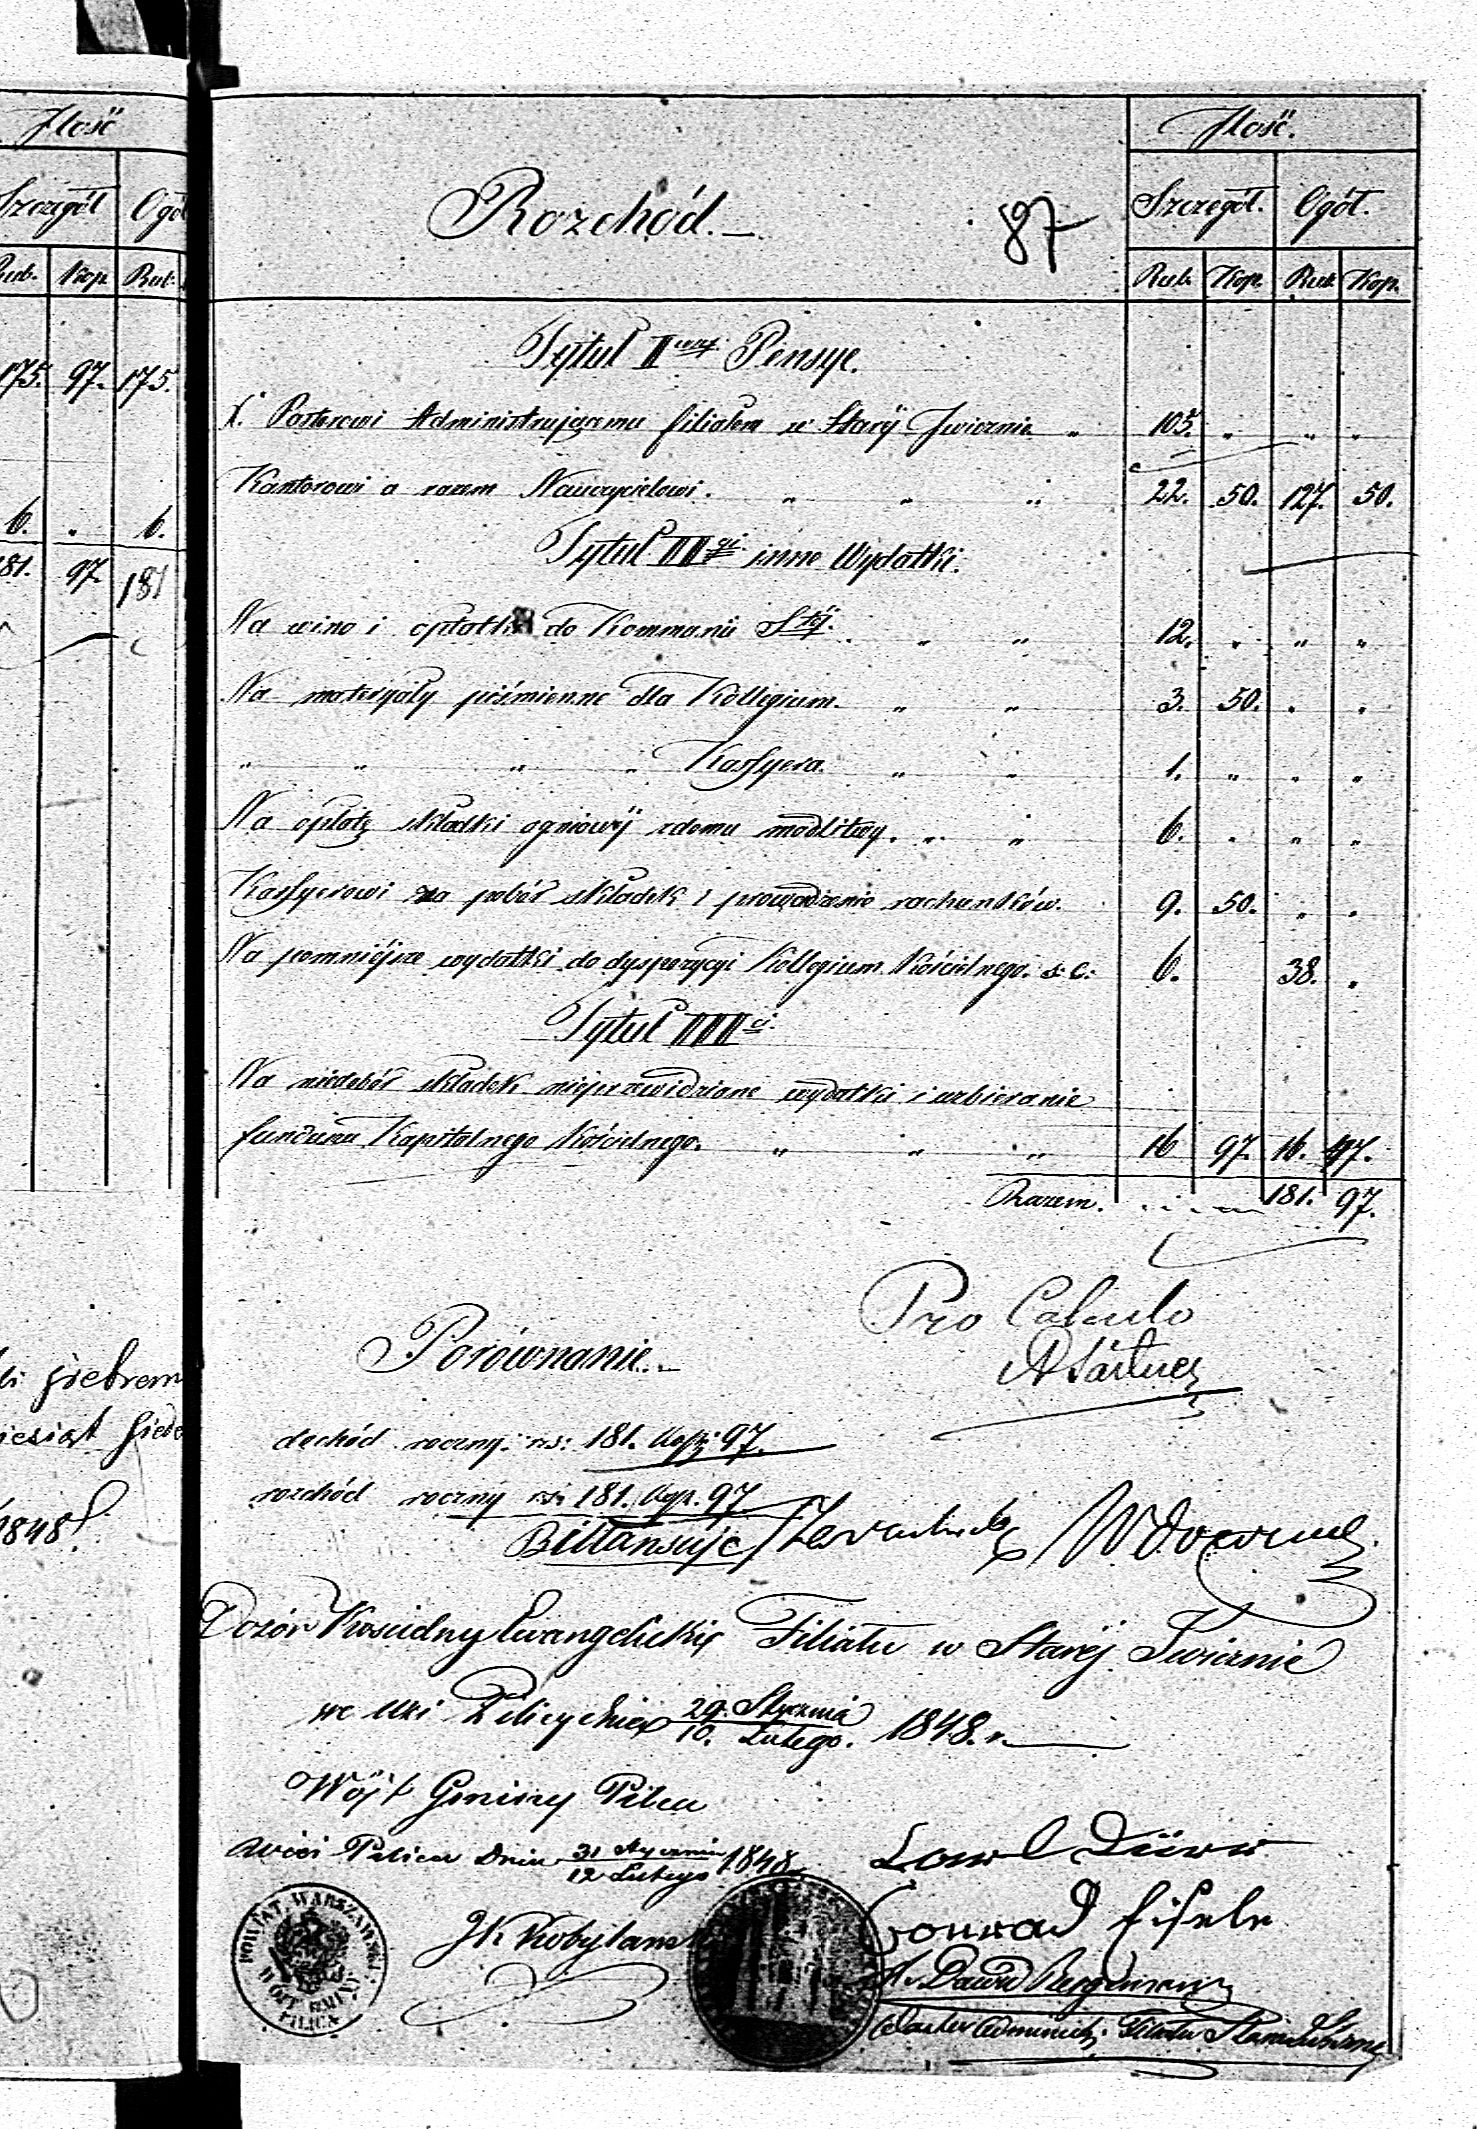 Ilość
Szczegół Ogół
Rub. Kop. Rub.
175. 97. 175.
6. „ 6.
181. 97. 181
1848
Rozchód.
87
Ilość.
Szczegół. Ogół.
Rub. Kop. Rub. Kop.
Tytuł II Pensye.
X. Pastorowi Administrującemu filiałem w Staréj Iwicznie „ 105. „ „ „
Kantorowi a razem Nauczycielowi. „ „ „ 22. 50. 127. 50.
Tytuł III inne Wydatki.
Na wino i opłatki do Kommunii Stéj. „ „ 12. „ „ „
Na materyały piśmienne dla Kollegium. „ „ 3. 50. „ „
„ „ „ „ Kassyera. „ „ 1. „ „ „
Na opłatę składki ogniowéj z domu modlitwy. „ „ 6. „ „ „
Kassyerowi za pobór składek i prowadzenie rachunków. 9. 50. „ „
Na pomniéjsze wydatki do dyspozycyi Kollegium Kościelnego. 6. 38. „
Tytuł IIII
Na niedobór składek nieprzewidziane wydatki i uzbieranie
funduszu Kapitalnego Kościelnego. „ „ „ 16 97. 16. 97.
Razem. 181. 97.
Pro Calculo
Porównanie.
dochód roczny rs: 181. Kop. 97.
rozchód roczny rs: 181. Kop. 97
Billansuje
Dozór Kościelny Ewangelicki Filiału w Staréj Iwicznie
we Wsi 29. Stycznia 1848. r.
10. Lutego.
Wójt Gminy Pilica
Wieś Pilica Dnia 31 Stycznia 1848
12 Lutego
Carl Dürr
J K Kobylanski
Conrad Eisele
POWIAT WARSZAWSKI
WÓJT GMINY
PILICA